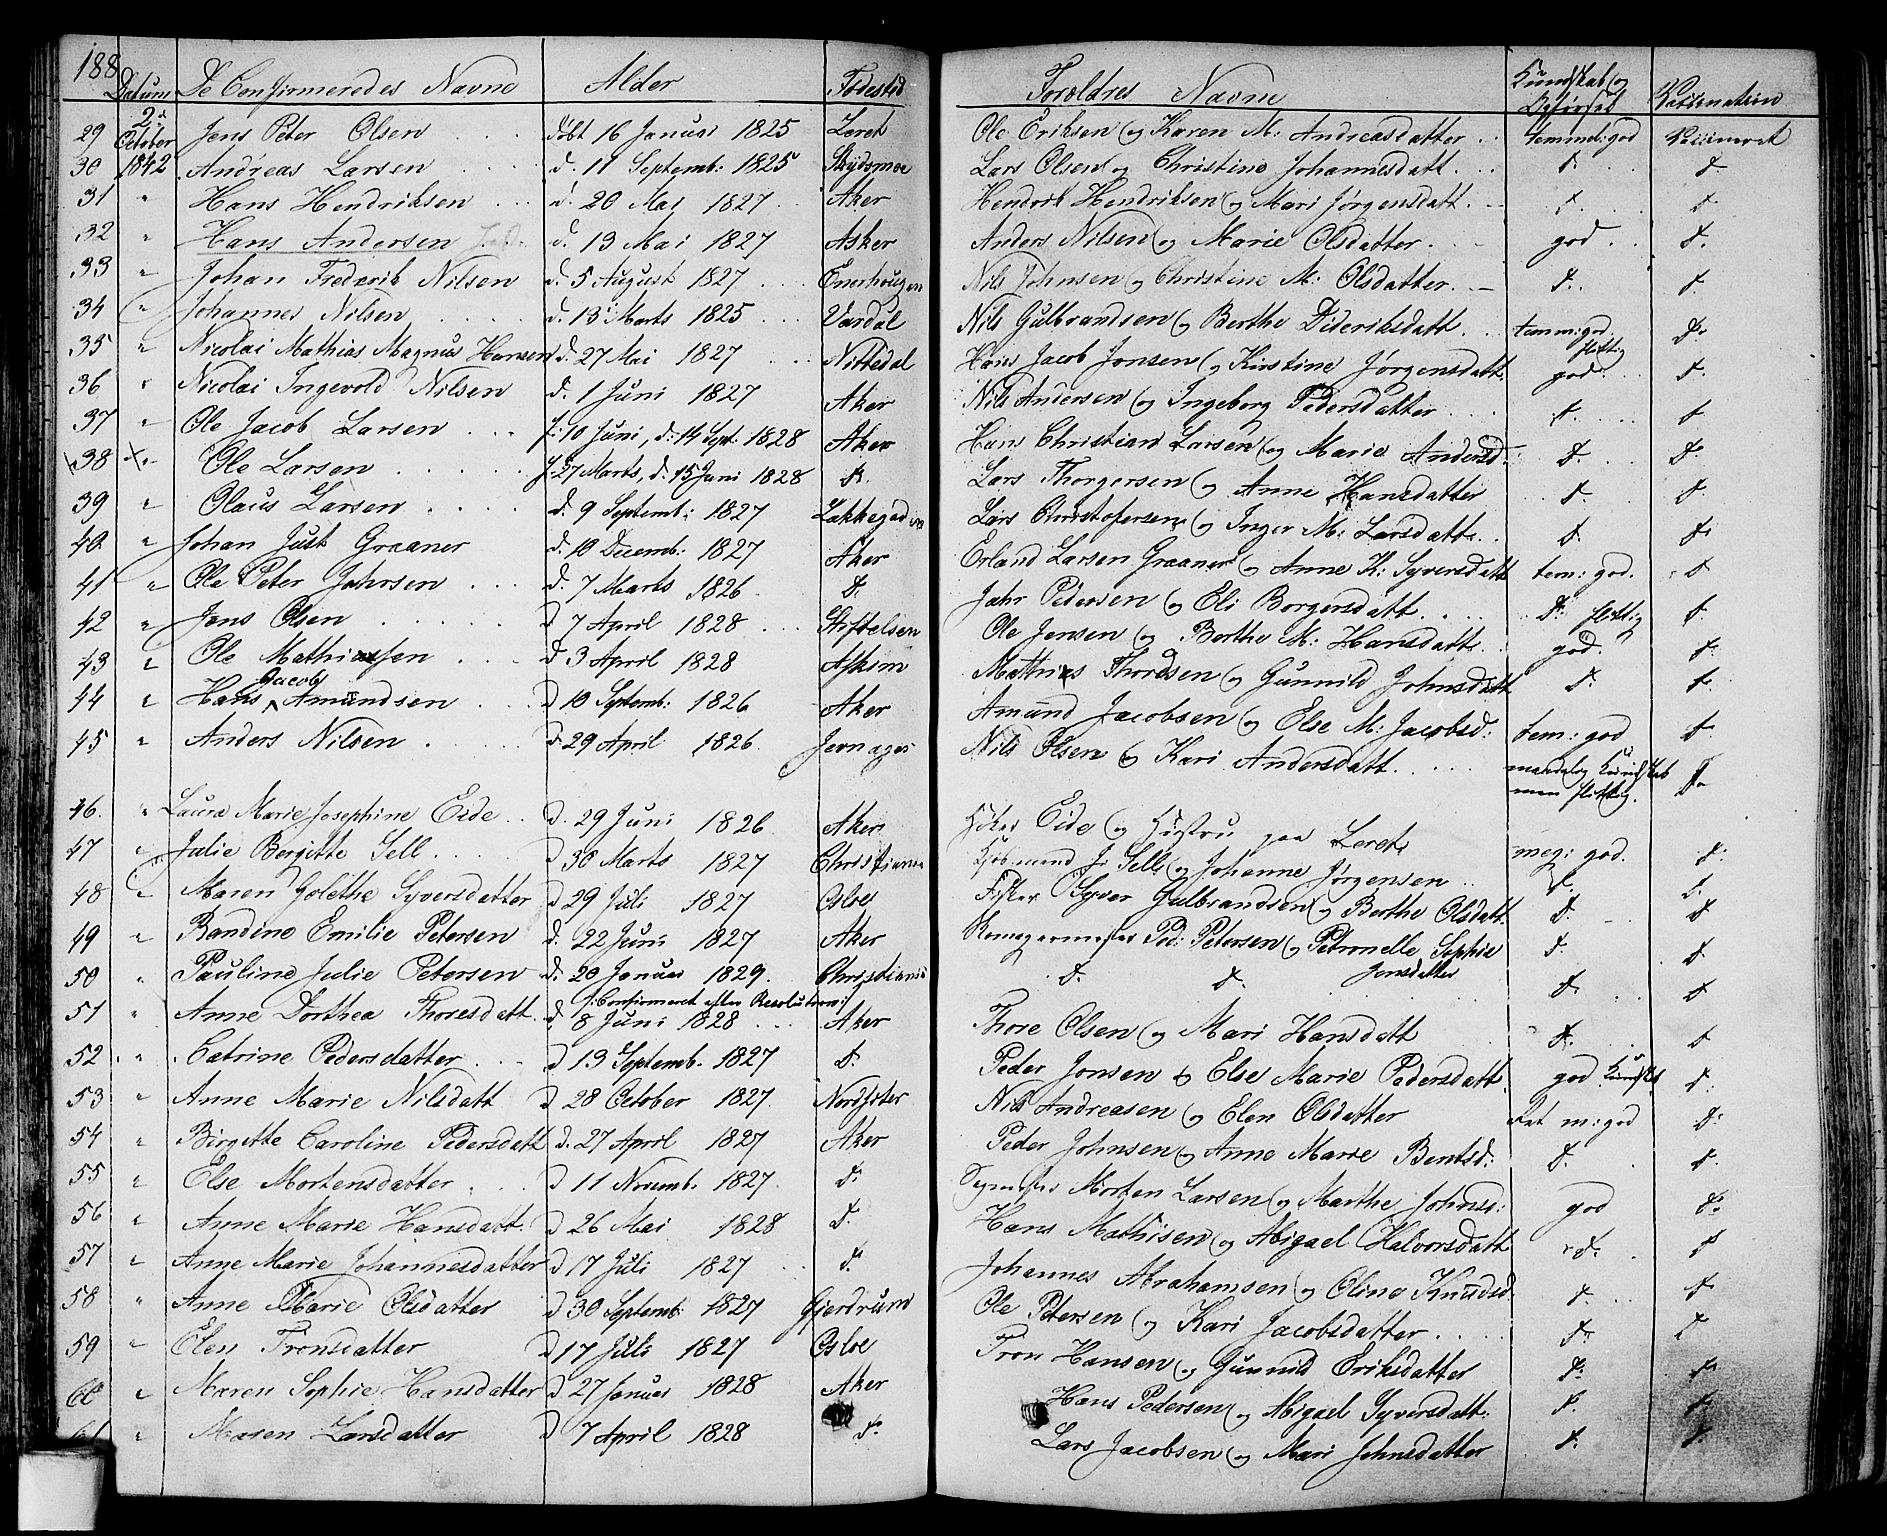 188
Datum De Confirmeredes Navne Alder Fødested Forældres Navne Kundskab og Opførsel Vaccination
29 2d October Jens Peter Olsen døbt 16 Januar 1825 Leret Ole Eriksen og Karen M: Andreasdatter temmel: god Vaccineret
30 1842 Andreas Larsen d. 11 Septemb: 1825 Skydsmoe Lars Olsen og Christine Johannesdatt. D D
31 " Hans Hendriksen d. 20 Mai 1827 Aker Hendrik Hendriksen og Mari Jørgensdatt. D D
32 " Hans Andersen d. 13 Mai 1827 Asker Anders Nilsen og Marie Olsdatter. god D.
33 " Johan Frederik Nilsen d. 5 August 1827 Enerhougen Nils Johnsen og Christine M: Olsdatter. D. D.
34 " Johannes Nilsen d. 13 Marts 1825 Vardal Nils Gulbrandsen og Berthe Dideriksdatt. temm: god flittig D.
35 " Nicolai Mathias Magnus Hansen d. 27 Mai 1827 Nittedal Hans Jacob Jonsen og Kirstine Jørgensdatt. god. D.
36 " Nicolai Ingevold Nilsen d. 1 Juni 1827 Aker Nils Andersen og Ingeborg Pedersdatter D. D
37 " Ole Jacob Larsen f: 10 Juni, d: 14 Sept: 1828 Aker Hans Christian Larsen og Marie Andersd: D. D.
38 " Ole Larsen f 27 Marts, d. 15 Juni 1828 D. Lars Thorgersen og Anne Hansdatter D. D.
39 " Olaus Larsen d. 9 Septemb: 1827 Lakkegaden Lars Christofersen og Inger M: Larsdatt. D. D.
40 " Johan Just Graaner d. 10 Decemb: 1827 Aker Erland Larsen Graaner og Anne K: Syversdatt tem: god. D
41 " Ole Peter Jahrsen d. 7 Marts 1826 D. Jahr Pedersen og Eli Borgersdatt. D: flittig D.
42 " Jens Olsen d 7 April 1828 Stiftelsen Ole Jensen og Berthe M: Hansdatt. god. D.
43 " Ole Mathiesen d 3 April 1828 Askim Mathies Thordsen og Gunnild Johnsdatt D. D.
44 " Hans Jacob Amundsen d 10 Septemb: 1826 Aker Amund Jacobsen og Else M: Jacobsd: tem: god D.
45 " Anders Nilsen d. 29 April 1826. Jevnager Nils Olsen og Kari Andersdatt. maadelig Kundskab men flittig. D.
46. " Laura Marie Josephine Eide d. 29 Juni 1826 Aker Eide og Hustru paa Leret meg: god. D.
47 " Julie Bergitte Sell d 30 Marts 1827 Christiania Kjøbmand J: Sell og Johanne Jørgensen D. D.
48 " Maren Golethe Syversdatter d 29 Juli 1827 Osloe Fisker Syver Gulbrandsen og Berthe Olsdatt. D. D
49 " Randine Emilie Petersen d. 22 Juni 1827 Aker Ped: Petersen og Petronelle Sophie Jonsdatter D. D
50 " Pauline Julie Petersen d. 20 Januar 1829. /: Confirmeret efter Resolution :/ Christiania D. D. D. D
51 " Anne Dorthea Thoresdatt. d 8 Juni 1828 Aker Thore Olsen og Mari Hansdatt D. D
52 " Catrine Pedersdatter d 13 Septemb. 1827 D. Peder Jonsen og Else Marie Pedersdatt. god Kundskab D.
53 " Anne Marie Nilsdatt d 28 October 1827. Nordsiter Nils Andreasen og Elen Olsdatter m: god D.
54 " Birgitte Caroline Pedersdatt d. 27 April 1827 Aker Peder Johnsen og Anne Marie Bentsd: D. D.
55 " Else Mortensdatter d 11 Novemb. 1827. D. Morten Larsen og Marthe Johnsd: god D.
56 " Anne Marie Hansdatt. d 26 Mai 1828 D. Hans Mathisen og Abigael Halvorsdatt D. D
57 " Anne Marie Johannesdatter d 17 Juli 1827 D. Johannes Abrahamsen og Oline Knudsd D. D
58 " Anne Marie Olsdatter d 30 Septemb: 1827 Gjerdrum Ole Petersen og Kari Jacobsdatter. D. D
59 " Elen Tronsdatter d 17 Juli 1827 Osloe Tron Hansen og Gunnild Eriksdatter D. D.
60 " Maren Sophie Hansdatter d 27 Januar 1828 Aker Hans Pedersen og Abigael Syversdatt. D. D.
61 " Maren Larsdatter d 7 April 1828 D. Lars Jacobsen og Mari Johnsdatter D. D.